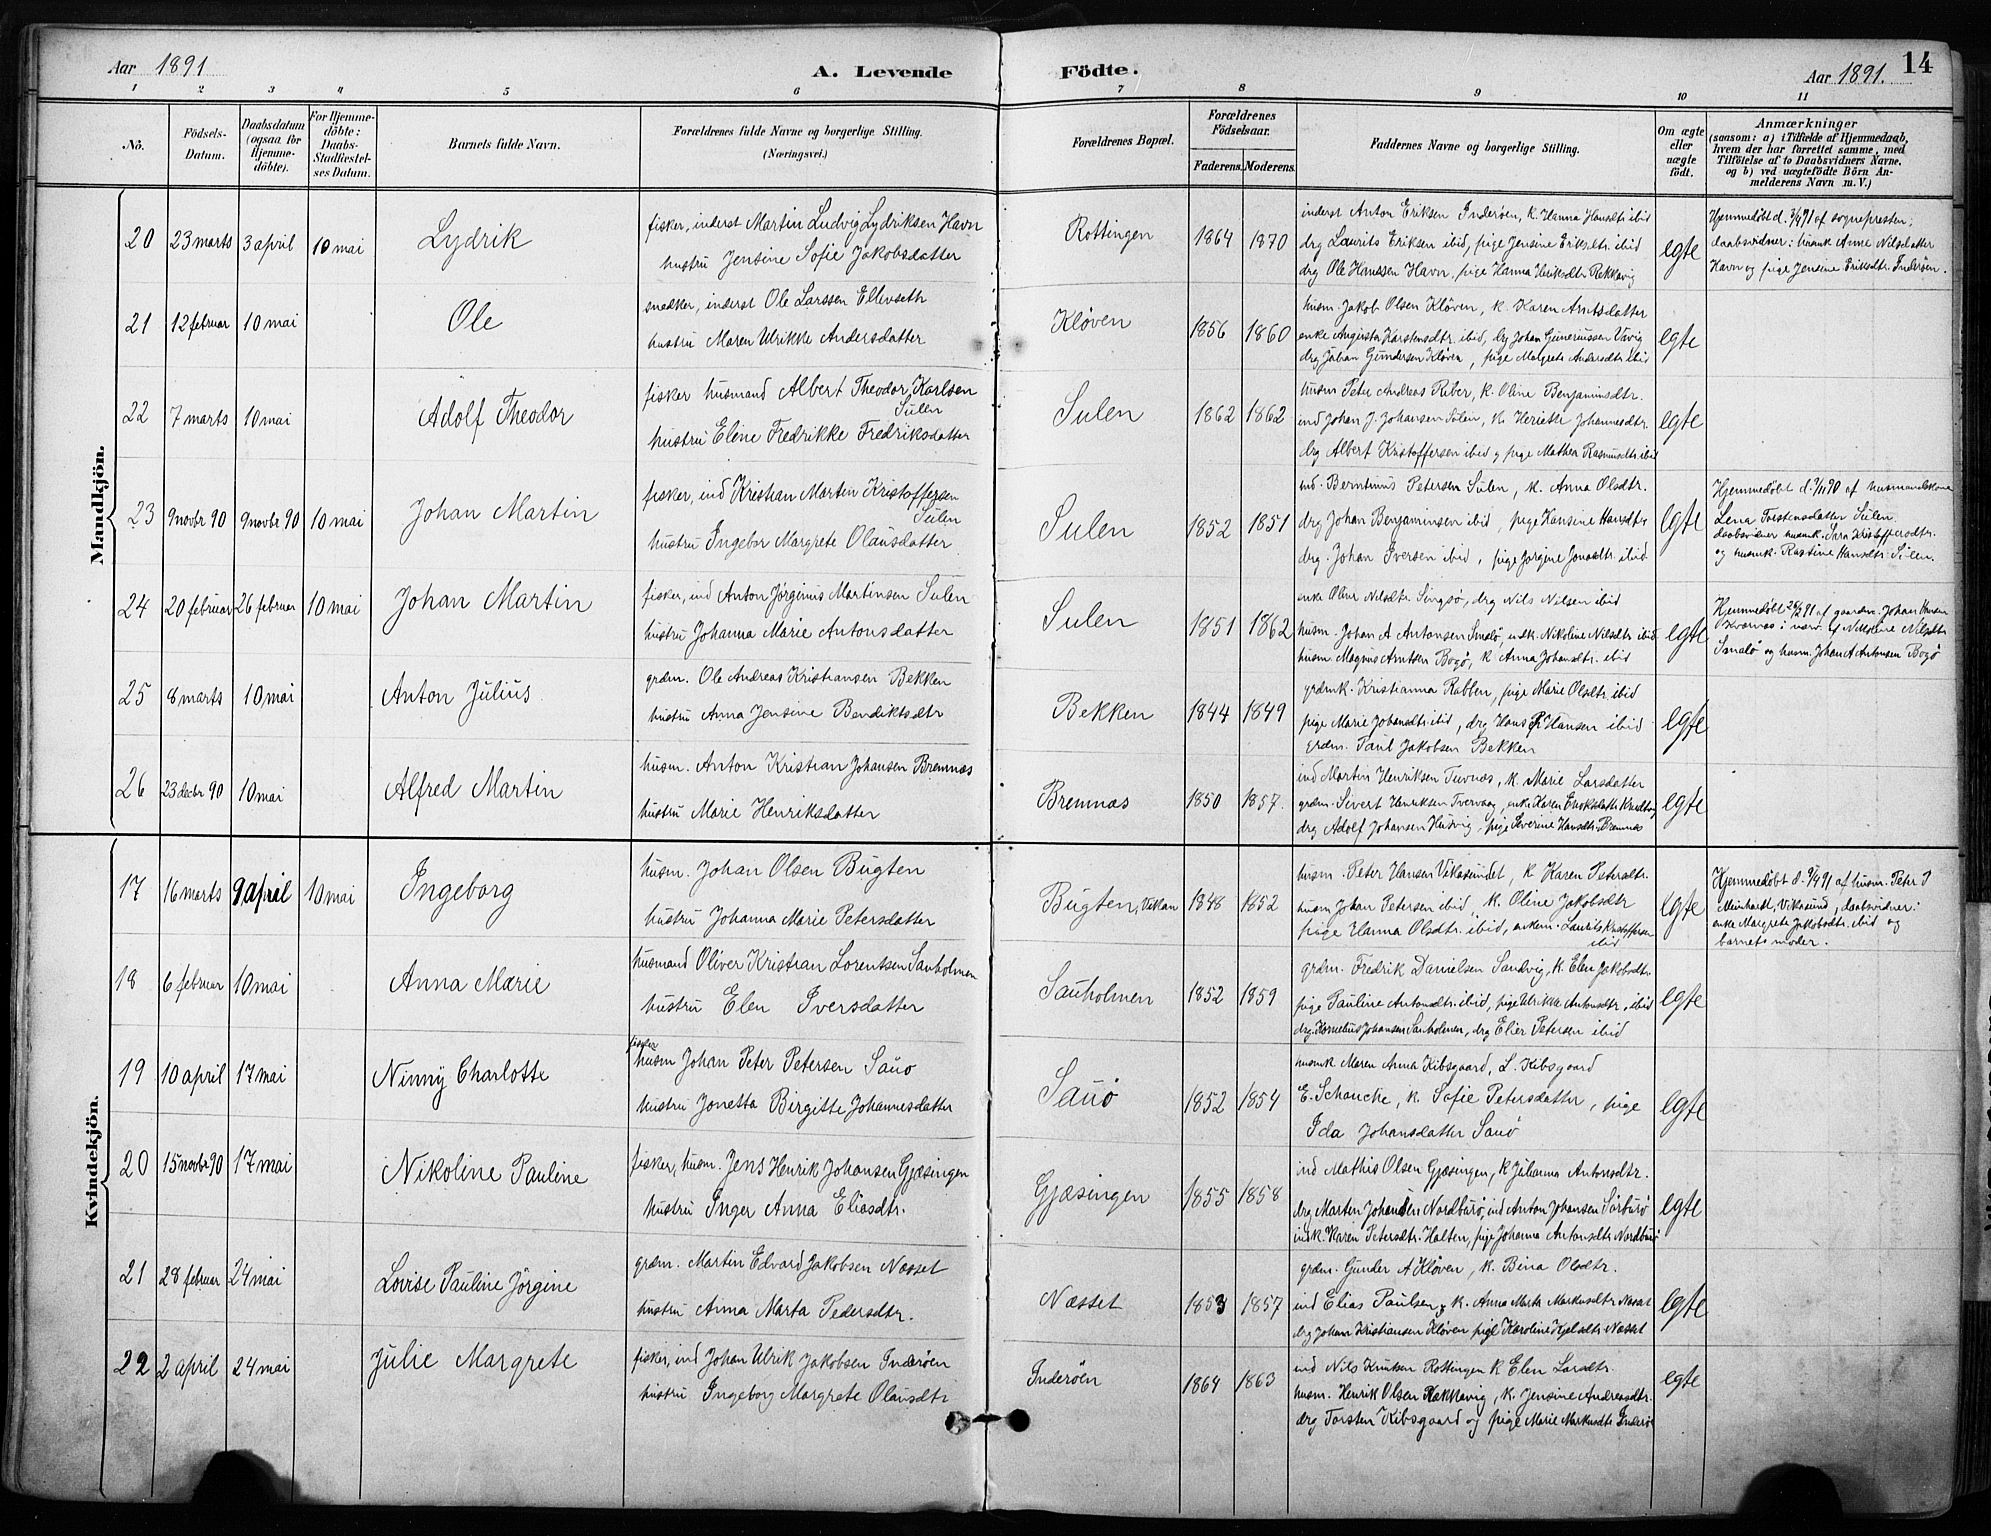 Aar 1891 A. Levende Födte. Aar 1891. 14
1 2 3 4 5 6 7 8 9 10 11
No. Födsels-Datum. Daabsdatum (ogsaa for Hjemmedöbte). For Hjemmedöbte: Daabs-Stadfæstelses Datum. Barnets fulde Navn. Forældrenes fulde Navne og borgerlige Stilling. (Næringsvei.) Forældrenes Bopæl. Forældrenes Födselsaar. Faderens. Moderens. Faddernes Navne og borgerlige Stilling. Om ægte eller uægte födt. Anmærkninger (saasom: a) i Tilfælde af Hjemmedaab, hvem der har forrettet samme, med Tilföielse af to Daabsvidners Navne, og b) ved uægtefödte Börn Anmelderens Navn m. V.)
Mandkjön.
20 23 marts 3 april 10 mai Lydrik
fisker, inderst Martin Ludvig Lydriksen Havn
hustru Jensine Sofie Jakobsdatter
Rottingen 1864 1870
inderst Anton Eriksen Inderöen, k. Hanna Hansdtr ibid
drg Laurits Eriksen ibid, pige Jensine Eriksdtr. ibid
drg Ole Hanssen Havn, pige Hanna Eriksdtr Rekkavig
egte
Hjemmedøbt d. 3/4 91 af sognepresten;
daabsvidner: husmk Anne Nilsdatter
Havn og pige Jensine Eriksdtr. Inderöen.
21 12 februar 10 mai Ole
snedker, inderst Ole Larssen Ellevseth
hustru Maren Ulrikke Andersdatter
Kløven 1856 1860
husm. Jakob Olsen Kløven, k. Karen Arntsdatter
enke Augusta Karstensdtr. ibid, drg Johan Gunerinssen Vavig
drg Johan Gundersen Kløven, pige Malgrete Andersdtr ibid
egte
22 7 marts 10 mai Adolf Theodor
fisker husmand Albert Theodor Karlsen
Sulen
hustru Eline Fredrikke Fredriksdatter
Sulen 1862 1862
husm Peter Andreas Riber, k. Oline Benjaminsdtr.
ind Johan J. Johansen Sulen, k. Heriette Johannesdtr.
drg Albert Kristoffersen ibid og pige Mathea Rasmusdtr ibid
egte
23 9 novbr 90 9 novbr 90 10 mai Johan Martin
fisker, ind Kristian Martin Kristoffersen
Sulen
hustru Ingebor Margrete Olausdatter
Sulen 1852 1851
ind. Berntinus Petersen Sulen, k. Anna Olsdtr.
drg Johan Benjaminsen ibid, pige Hansine Hansdtr
drg. Johan Iversen ibid, pige Jorgine Jonasdtr. ibid
egte
Hjemmedøbt d. 9/11 90 af husmandskone
Lena Torstensdatter Sulen.
daabsvidner husmk. Sara Kristoffersdtr.
og husmk. Rastine Hansdtr. Sulen.
24 20 februar 26 februar 10 mai Johan Martin
fisker, ind Anton Jørginus Martinsen Sulen
hustru Johanna Marie Antonsdatter
Sulen 1851 1862
enke Oline Nilsdtr. Singsø, drg Nils Nilsen ibid
husm. Johan A Antonsen Smalø, indk. Nikoline Nilsdtr ibid
husm Magnus Arntsen Bogø, k Anna Johansdtr. ibid
egte
Hjemmedøbt 26/2 91 af gaardm. Johan Hansen
Kvernæs i nærv. af Nikoline Nilsdtr
Smalø og husm. Johan A Antonsen Bogø
25 8 marts 10 mai Anton Julius
grdm. Ole Andreas Kristiansen Bekken
hustru Anna Jensine Bendiktsdtr
Bekken 1844 1849
grdmk. Kristianna Rabben, pige Marie Olsdtr. ibid
pige Marie Johansdtr. ibid, drg Hans P Hansen ibid
grdm. Paul Jakobsen Bekken
egte
26 23 decbr 90 10 mai Alfred Martin
husm. Anton Kristian Johansen Bremnæs
hustru Marie Henriksdatter
Bremnæs 1850 1857.
ind Martin Henriksen Tuvnæs, k. Marie Larsdatter
grdm. Sivert Henriksen Tvervaag, enke Karen Enoksdatter
drg Adolf Johansen Husvig, pige Severine Hansdtr. Bremnæs
egte
Kvindekjön.
17 16 marts 9 april 10 mai Ingeborg
husm. Johan Olsen Bugten
hustru Johanna Marie Petersdatter
Bugten, Vikan 1848 1852
husm. Peter Hansen Vikasundet, k Karen Petersdtr.
husm Johan Petersen ibid, k. Oline Jakobsdtr
pige Hanna Olsdtr. ibid, enkem. Laurits Kristoffersen
ibid
egte
Hjemmedøbt d. 9/4 91 af husm. Peter J
Meinhardt, Vikasund, daabsvidner:
enke Margrete Jakobsdtr. ibid og
barnets moder.
18 6 februar 10 mai Anna Marie
husmand Oliver Kristian Lorentsen Sauholmen
hustru Elen Iversdatter
Sauholmen 1852 1859
grdm. Fredrik Danielsen Sandvig, k. Elen Jakobsdtr.
pige Pauline Antonsdtr. ibid, pige Ulrikke Antonsdtr, ibid
drg. Kornelius Johansen Sauholmen, drg Elier Petersen ibid
egte
19 10 april 17 mai Ninny Charlotte
fisker
husm Johan Peter Petersen Sauø
hustru Jonetta Birgitte Johannesdatter
Sauø 1852 1854
husmk Maren Anna Kibsgaard, L. Kibsgaard
E. Schanche, k. Sofie Petersdatter, pige
Ida Johansdatter Sauø
egte
20 15 novbr 90 17 mai Nikoline Pauline
fisker, husm. Jens Henrik Johansen Gjæsingen
hustru Inger Anna Eliasdtr.
Gjæsingen 1855 1858
ind Mathis Olsen Gjæsingen, k Julianna Antonsdtr.
drg Marten Johansen Nordburø, ind Anton Johansen Sørburø
indk. Karen Petersdtr. Halten, pige Johanna Antonsdtr Nordburø
egte
21 28 februar 24 mai Lovise Pauline Jörgine
grdm. Martin Edvard Jakobsen Næsset
hustru Anna Marta Pedersdtr.
Næsset 1853 1857
grdm. Gunder A Kløven, k. Bina Olsdtr.
ind Elias Paulsen, k. Anna Marta Markusdtr Næsset
drg Johan Kristiansen Kløven pige Karoline Kjelsdtr Næsset
egte
22 2 april 24 mai Julie Margrete
fisker, ind Johan Ulrik Jakobsen Inderøen
hustru Ingeborg Margrete Olausdtr
Inderøen 1864 1863
ind Nils Knutsen Rottingen k Elen Larsdtr.
husm. Henrik Olsen Rækkavig, k. Jensine Andreasdtr.
drg Torsten Kibsgaard og pige Marie Markusdtr Inderø
egte